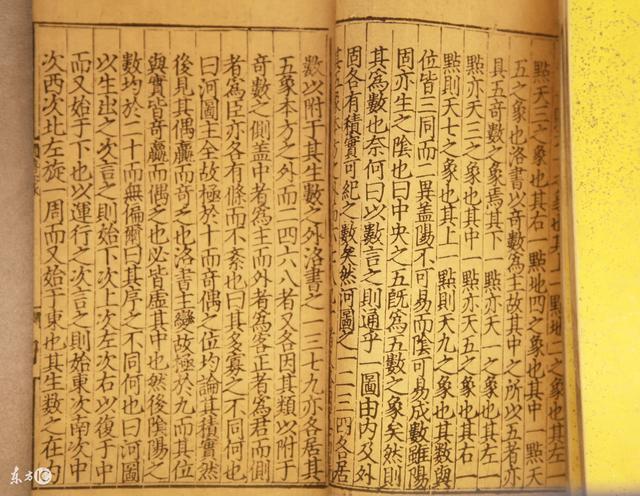 其上一點地二之象也其左
點天三之象也其右一點地四之象也其中一點天
五之象也洛書以奇數爲主故其中之所以五者亦
具五奇數之象焉其下一點亦天一之象也其左一
點亦天三之象也其中一點亦天五之象也其右一
點則天七之象也其上一點則天九之象也其數與
位皆三同而二異蓋陽不可易而陰可易成數雖陽
固亦生之陰也曰中央之五旣爲五數之象矣然則
其爲數也奈何曰以數言之則通乎一圖由内及外
固各有積實可紀之數矣然河圖之一二三四各居
其五象本方之外
數以附于其生數之外洛書之一三七九亦各居其
五象本方之外而二四六八者又各因其類以附于
奇數之側蓋中者爲主而外者爲客正者爲君而側
者爲臣亦各有條而不紊也曰其多寡之不同何也
曰河圖主全故極於十而奇偶之位均論其積實然
後見其偶贏而奇乏也洛書主變故極於九而其位
與實皆奇贏而偶乏也必皆虛其中也然後陰陽之
數均於二十而無偏爾曰其序之不同何也曰河圖
以生出之次言之則始下次上次左次右以復于中
而又始于下也以運行之次言之則始東次南次中
次西次北左旋一周而又始于東也其生數之在内
東方IC